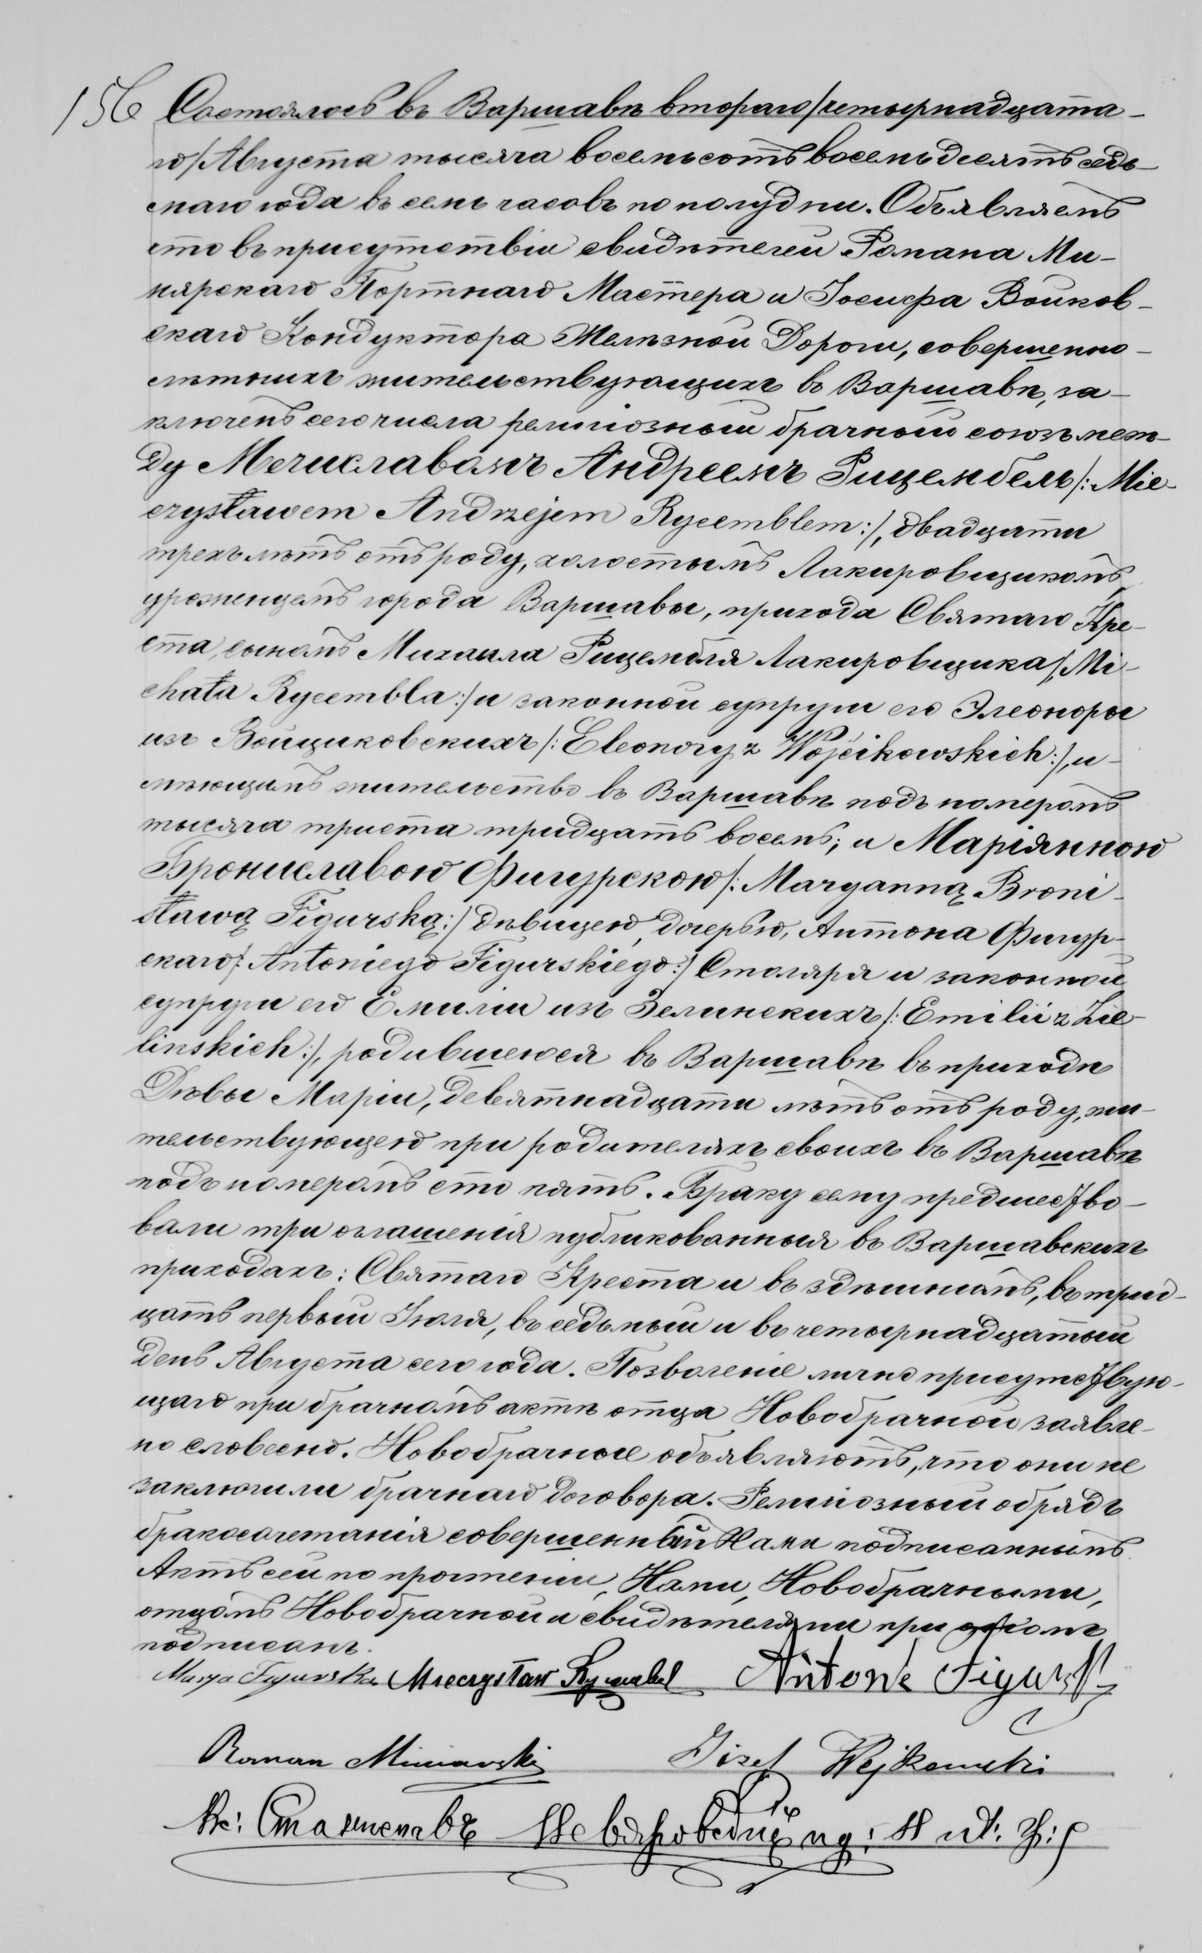 156 Состоялось въ Варшавѣ втораго/четырнадцата-
го/Августа тысяча восемьсотъ восемьдесятъ седь-
маго года въ семь часовъ пополудни. Объявляемъ
что въ присутствіи свидѣтелей Романа Ми-
нярскаго Портнаго Мастера и Іосифа Войков-
скаго Кондуктора Желѣзной Дороги, совершенно-
лѣтнихъ жительствующихъ въ Варшавѣ, за-
ключенъ сего числа религіозный брачный союзъ меж-
ду Мечиславомъ Андреемъ Рицембель/: Mie-
czysławem Andrzejem Rycemblem:/, двадцати
трехъ лѣтъ отъ роду, холостымъ Лакировщикомъ,
уроженцемъ города Варшавы, прихода Святаго Кре-
ста, сыномъ Михаила Рицембля Лакировщика/: Mi-
chała Rycembla:/ и законной супруги его Элеоноры
изъ Войциковскихъ/: Eleonory z Wojcikowskich:/, и-
мѣющимъ жительство въ Варшавѣ подъ номеромъ
тысяча триста тридцать восемь; и Маріянною
Брониславою Фигурскою/: Maryanną Broni-
sławą Figurską:/ дѣвицею, дочерью, Антона Фигур-
скаго/: Antoniego Figurskiego:/ Столяра и законной
супруги его Емиліи изъ Зелинскихъ/: Emilii z Zie-
linskich:/, родившеюся въ Варшавѣ въ приходѣ
Дѣвы Маріи, девятнадцати лѣтъ отъ роду, жи-
тельствующею при родителяхъ своихъ въ Варшавѣ
подъ номеромъ сто пять. Браку сему предшество-
вали три оглашенія публикованныя въ Варшавскихъ
приходахъ: Святаго Креста и въ здѣшнемъ, въ трид-
цать первый Іюля, въ седьмый и въ четырнадцатый
день Августа сего года. Позволеніе лично присутствую-
щаго при брачномъ актѣ отца Новобрачной заявле-
но словесно. Новобрачные объявляютъ, что они не
заключили брачнаго договора. Религіозный обрядъ
бракосочетанія совершенный Нами подписаннымъ.
Актъ сей по прочтеніи, Нами, Новобрачными,
отцомъ Новобрачной и свидѣтелями при
подписанъ.
Marya Figurska Mieczysław Rycembel Antoni Figurski
Roman Miniarski Józef Wejkowski
Кс: